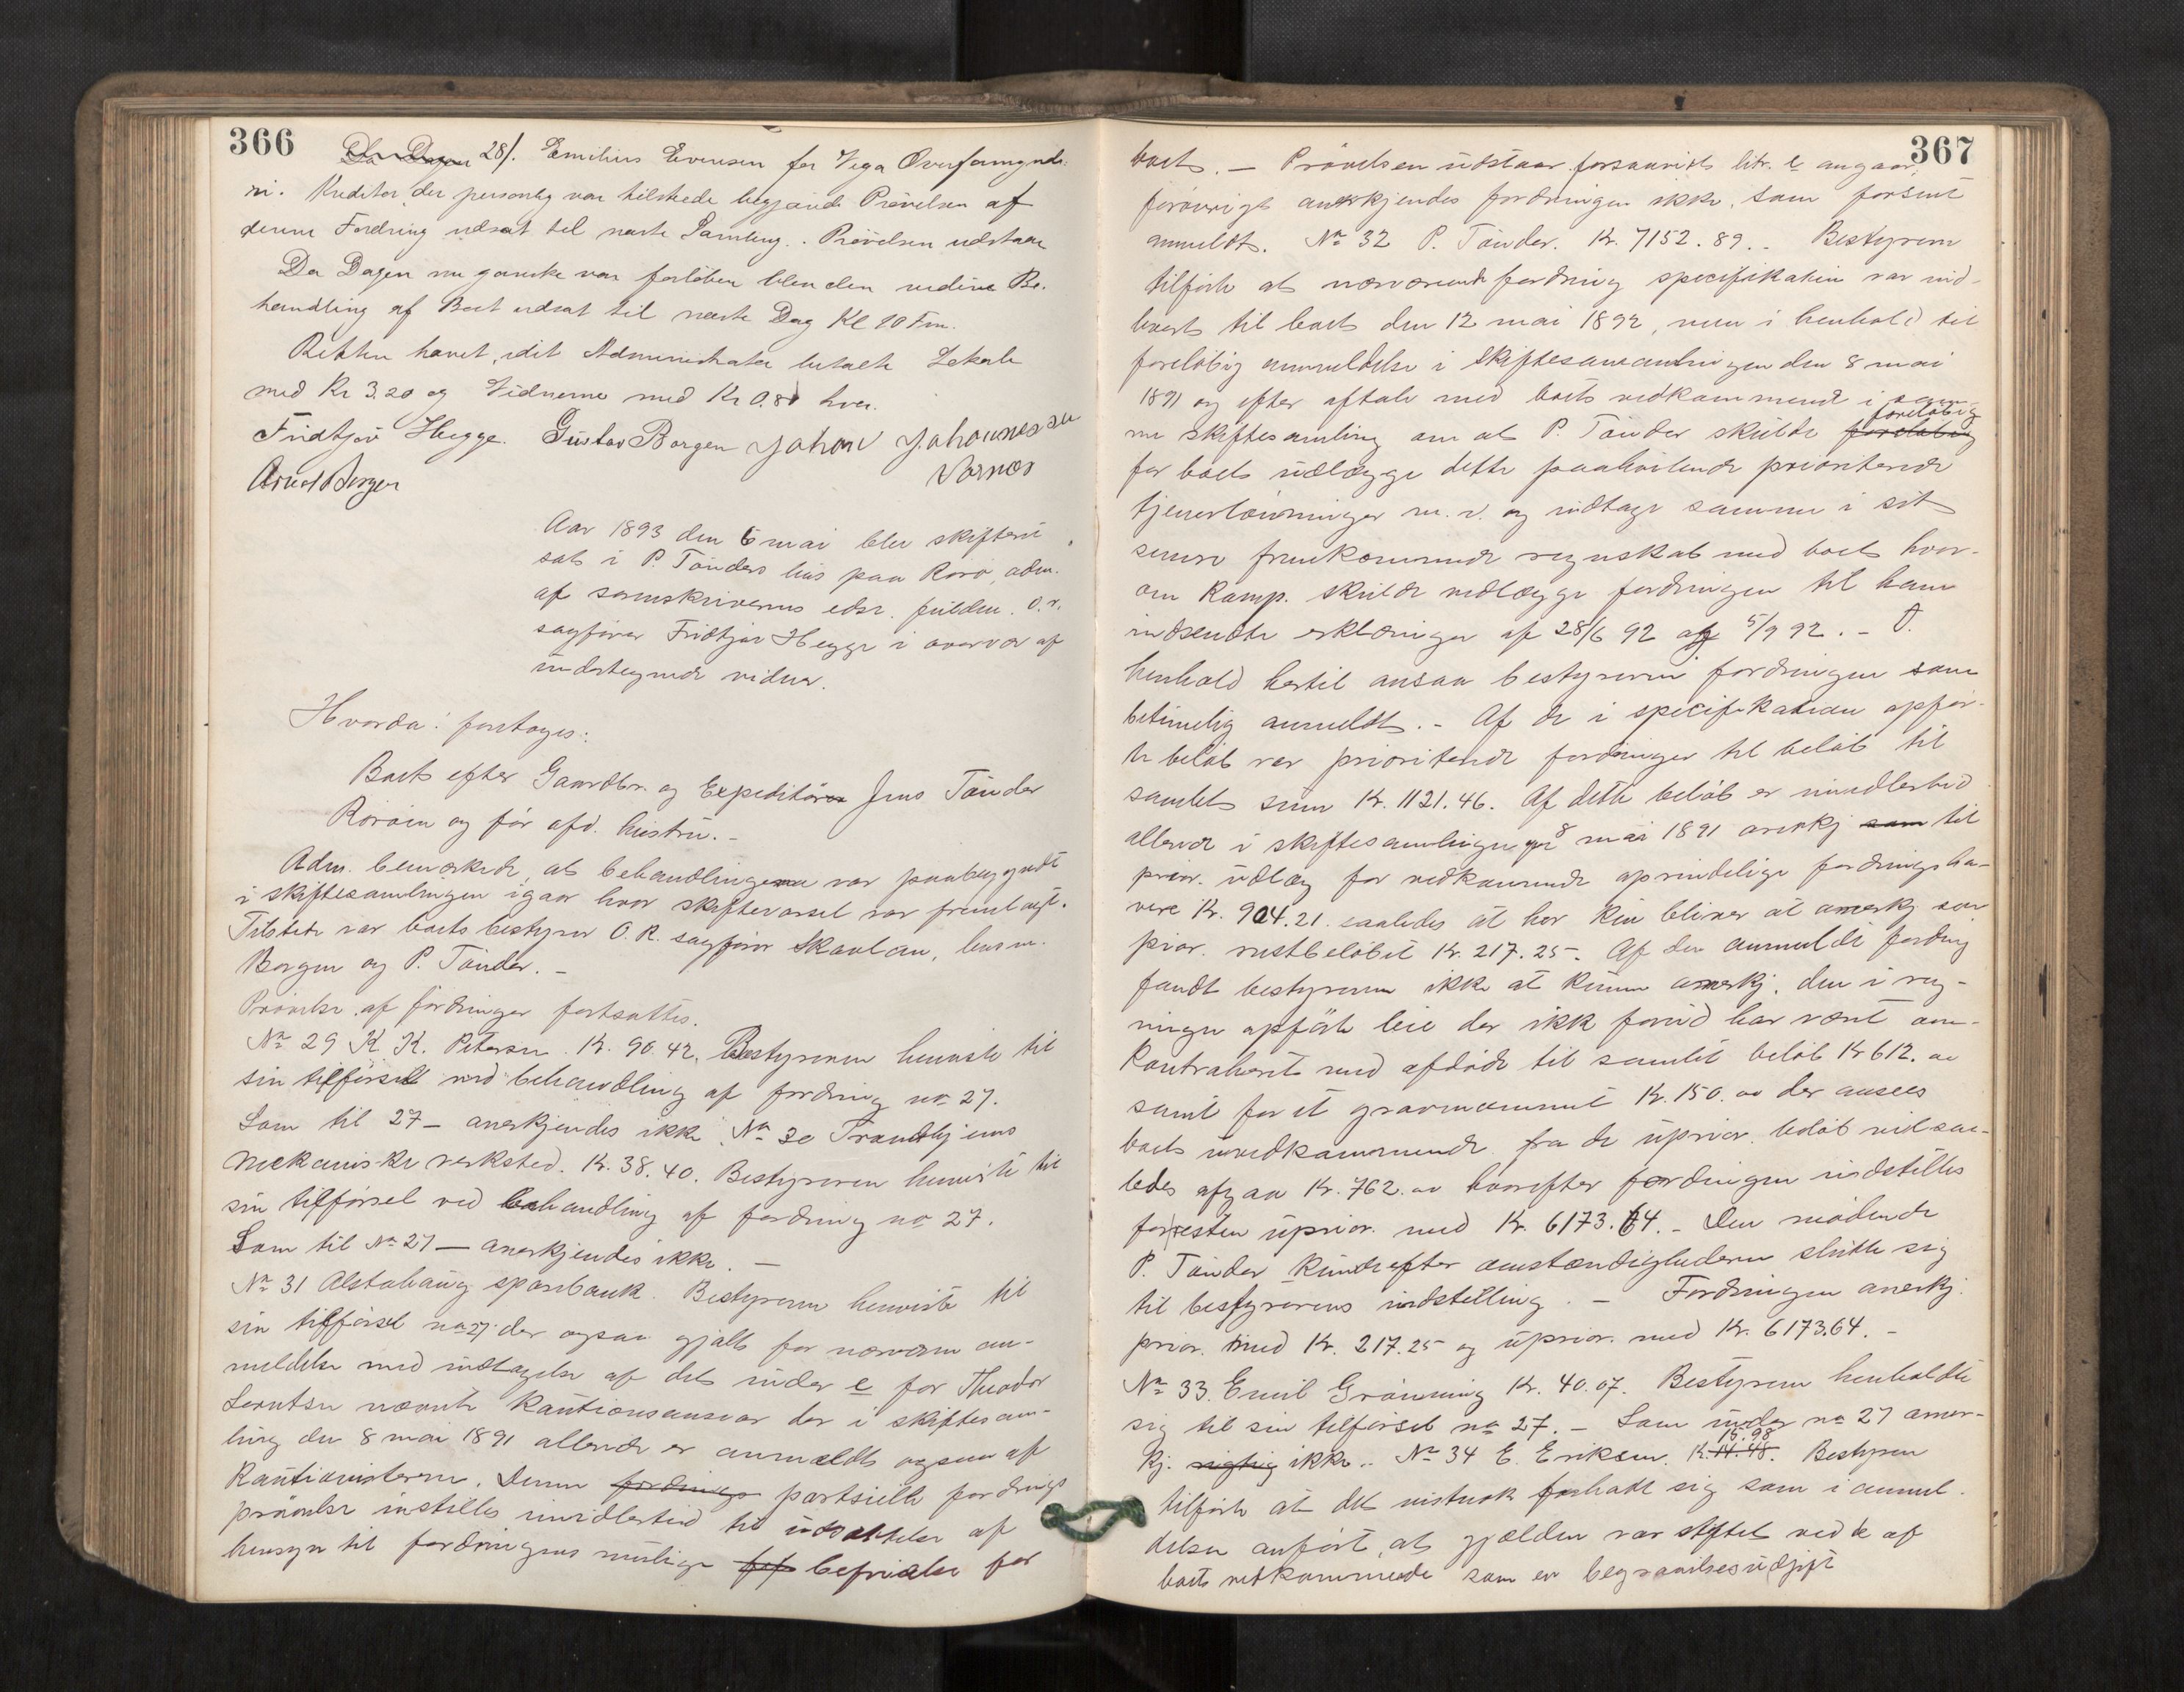 366
Da Dagen 28/. Emilius Evensen for Vega Overformynde-
ri. Kreditor, der personlig var tilstede begjærede Prøvelsen af
denne Fordring udsat til næste Samling. Prøvelsen udstaar
Da Dagen nu ganske var forløben blev den videre Be-
handling af Boet udsat til næste Dag Kl 10 Fm.
Retten hævet, idet Administrator betalte Lokale
med Kr 3.20 og Vidnerne med Kr 0.80 hver.
Fridtjov Hegge. Gustav Borgen Johan Johannessen
Arnet Borgen Vornes
Aar 1893 den 6 mai blev skifteret
sat i P. Tønders hus paa Rørø, adm.
af sorenskriverens edsv. fuldm. O.r.
sagfører Fridtjov Hegge i overvær af
undertegnede vidner.
Hvorda: foretoges:
Boet efter Gaardbr. og Expeditør Jens Tønder
Rørøen og før afd. hustru. -
Adm. bemærkede, at behandlingen var paabegyndt
i skiftesamlingen igaar hvor skiftevarsel var fremlagt.
Tilstede var boets bestyrer O. R. sagfører Skavlan, husm.
Borgen og P. Tønder. -
Prøvelse af fordringer fortsattes.
No 29 K. K. Petersen. Kr. 90.42. Bestyreren henviste til
sin tilførsel ved behandling af fordring no 27.
Som til 27 - anerkjendes ikke. No 30 Trondhjems
mekaniske verksted. Kr. 38.40. Bestyreren henviste til
sin tilførsel ved behandling af fordring no 27.
Som til No 27 - anerkjendes ikke. -
No 31 Alstahaug sparebank. Bestyreren henviste til
sin tilførsel no 27 der ogsaa gjaldt for nærværn an-
meldelse med undtagelse af det under e for Theodor
Lorntsen nævnte kautionsansvar der i skiftesam-
ling den 8 mai 1891 allerede er anmeldt ogsaa af
kautionisterne. Denne fordrings partsielle fordrings
prøvelse instilles imidlertid til udsættelse af
hensyn til fordringens mulige befrielse for
367
boet. - Prøvelsen udstaar forsaavidt litr. e angaar,
forøvrigt anerkjendes fordringen ikke, som forsent
anmeldt. No 32 P. Tønder. Kr. 7152.89. - Bestyreren
tilførte at nærværende fordring specifikation var ind-
leveret til boet den 12 mai 1892, men i henhold til
foreløbig anmeldelse i skiftesamlingen den 8 mai
1891 og efter aftale med boets vedkommende i sam-
me skiftesamling om at P. Tønder skulde foreløbig foreløbig
for boet udlægge dette paahvilende prioriterede
tjenerlønninger m.v. og indtage samme i sit
senere fremkommende regnskab med boet hvor-
om Komp. skulde vedlægge fordringen til ham
indsendte erklæringer af 28/6 92 og 5/9 92. - I
henhold hertil ansaa bestyreren fordringen som
betimelig anmeldt. - Af de i specifikationen opfør-
te beløb var prioriterede fordringer til beløb til
samlet sum Kr. 1121.46. Af dette beløb er imidlertid
allerede i skiftesamlingen 8 mai 1891 anerkj som til
prior. udlæg for vedkommende oprindelige fordringsha-
vere Kr. 904.21. saaledes at her kun bliver at anerkj som
prior. restbeløbet Kr. 217.25. Af den anmeldte fordring
fandt bestyreren ikke at kunne anerkj. den i reg-
ningen opførte leie der ikke forud har vært om-
kontraheret med afdøde til samlet beløb Kr 612.00
samt for et gravmonument Kr. 150.00 der ansees
boets uvedkommende fra de uprior. beløb vil saa-
ledes afgaa Kr. 762.00 hvorefter fordringen indstilles
forresten uprior. med Kr. 6173.64. - Den mødende
P. Tønder kunde efter omstændighederne slutte sig
til bestyrerens indstilling. - Fordringen anerkj.
prior. med Kr. 217.25 og uprior. med Kr. 6173.64. -
No 33. Emil Grønning Kr. 40.07. Bestyreren henholdte
sig til sin tilførsel no 27. - Som under no 27 aner-
kj. rigtig ikke. - No 34 E. Eriksen. Kr. 14.48. 15.98 Bestyreren
tilførte at det vistnok forholdt sig som i anmel-
delsen anført, at gjælden var stiftet ved de af
boets vedkommende som en begravelsesudgift